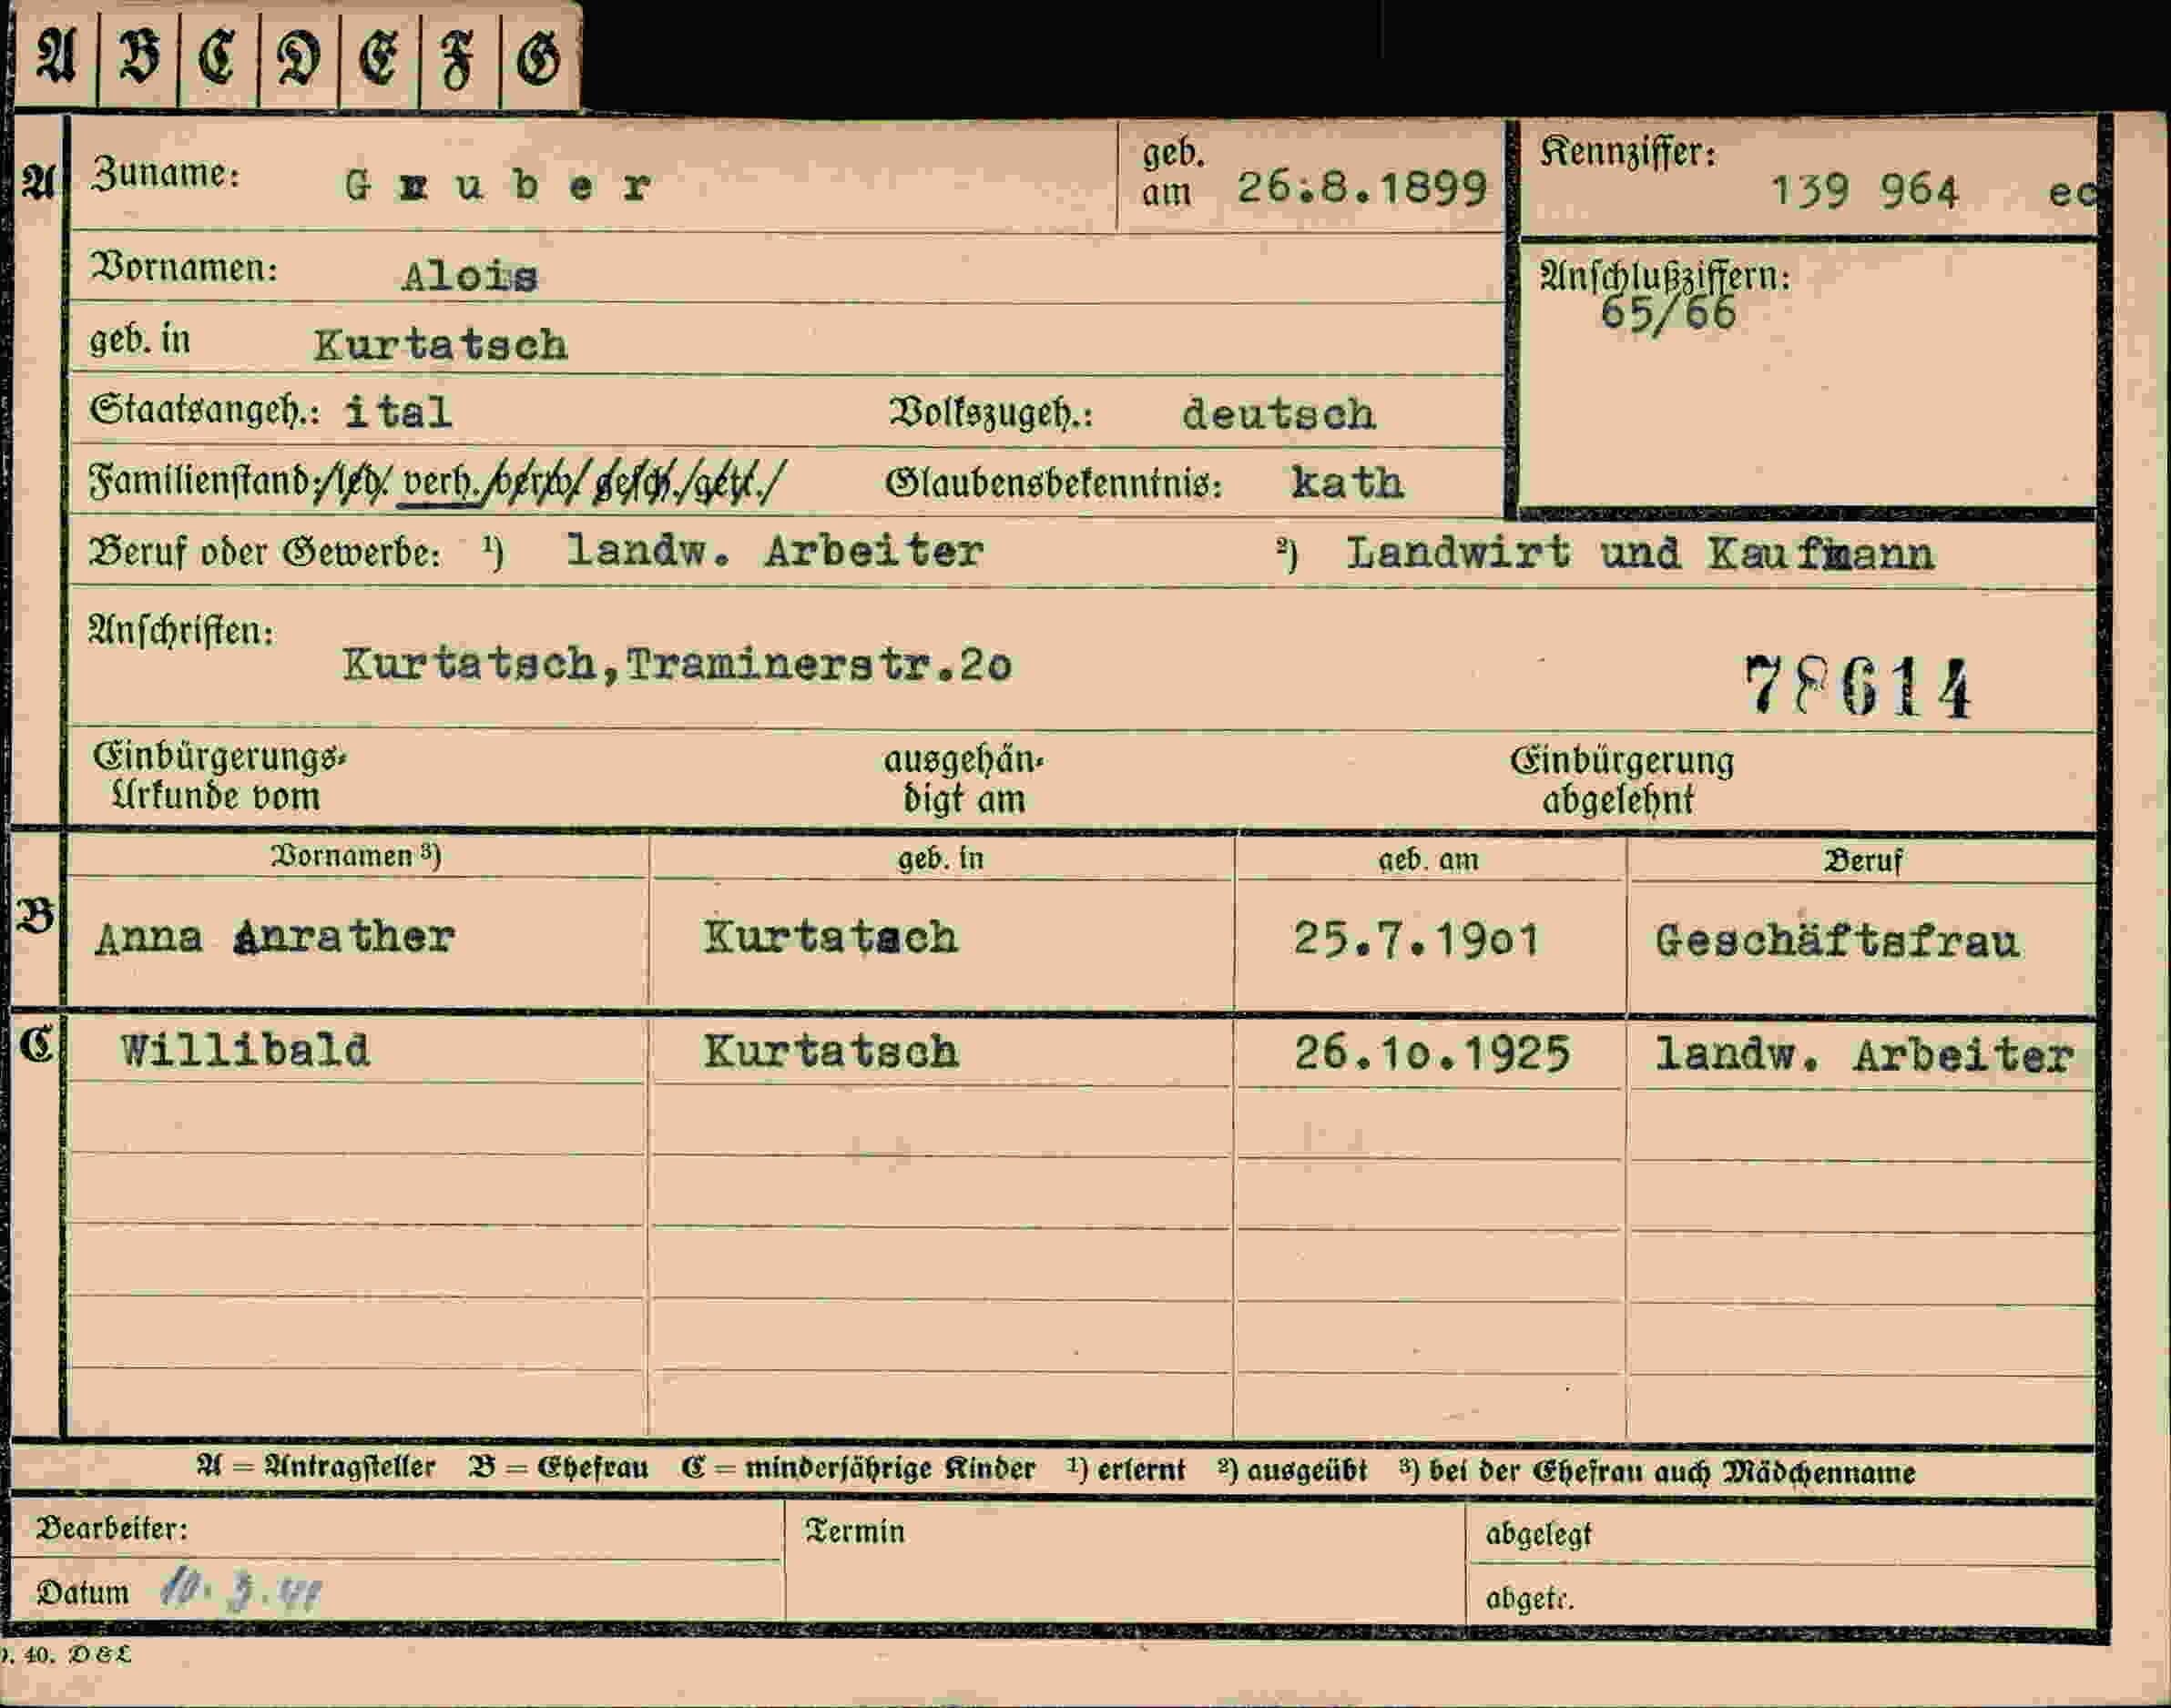 A B C D E F G
A Zuname: Gruber geb. am 26.8.1899 Kennziffer: 139 964
Vornamen: Alois Anschlußziffern: 65/66
geb. in Kurtatsch
Staatsangeh.: ital Volkszugeh.: deutsch
Familienstand: led. verh. verw. gesch. getr. Glaubensbekenntnis: kath
Beruf oder Gewerbe: ¹) landw. Arbeiter ²) Landwirt und Kaufmann
Anschriften:
Kurtatsch,Traminerstr.2o 78614
Einbürgerungs- ausgehän- Einbürgerung
Urkunde vom digt am abgelehnt
Vornamen ³) geb. in geb. am Beruf
B Anna Anrather Kurtatsch 25.7.19o1 Geschäftsfrau
C Willibald Kurtatsch 26.1o.1925 landw. Arbeiter
A = Antragsteller B = Ehefrau C = minderjährige Kinder ¹) erlernt ²) ausgeübt ³) bei der Ehefrau auch Mädchenname
Bearbeiter: Termin abgelegt
Datum abgetr.
40. D&L